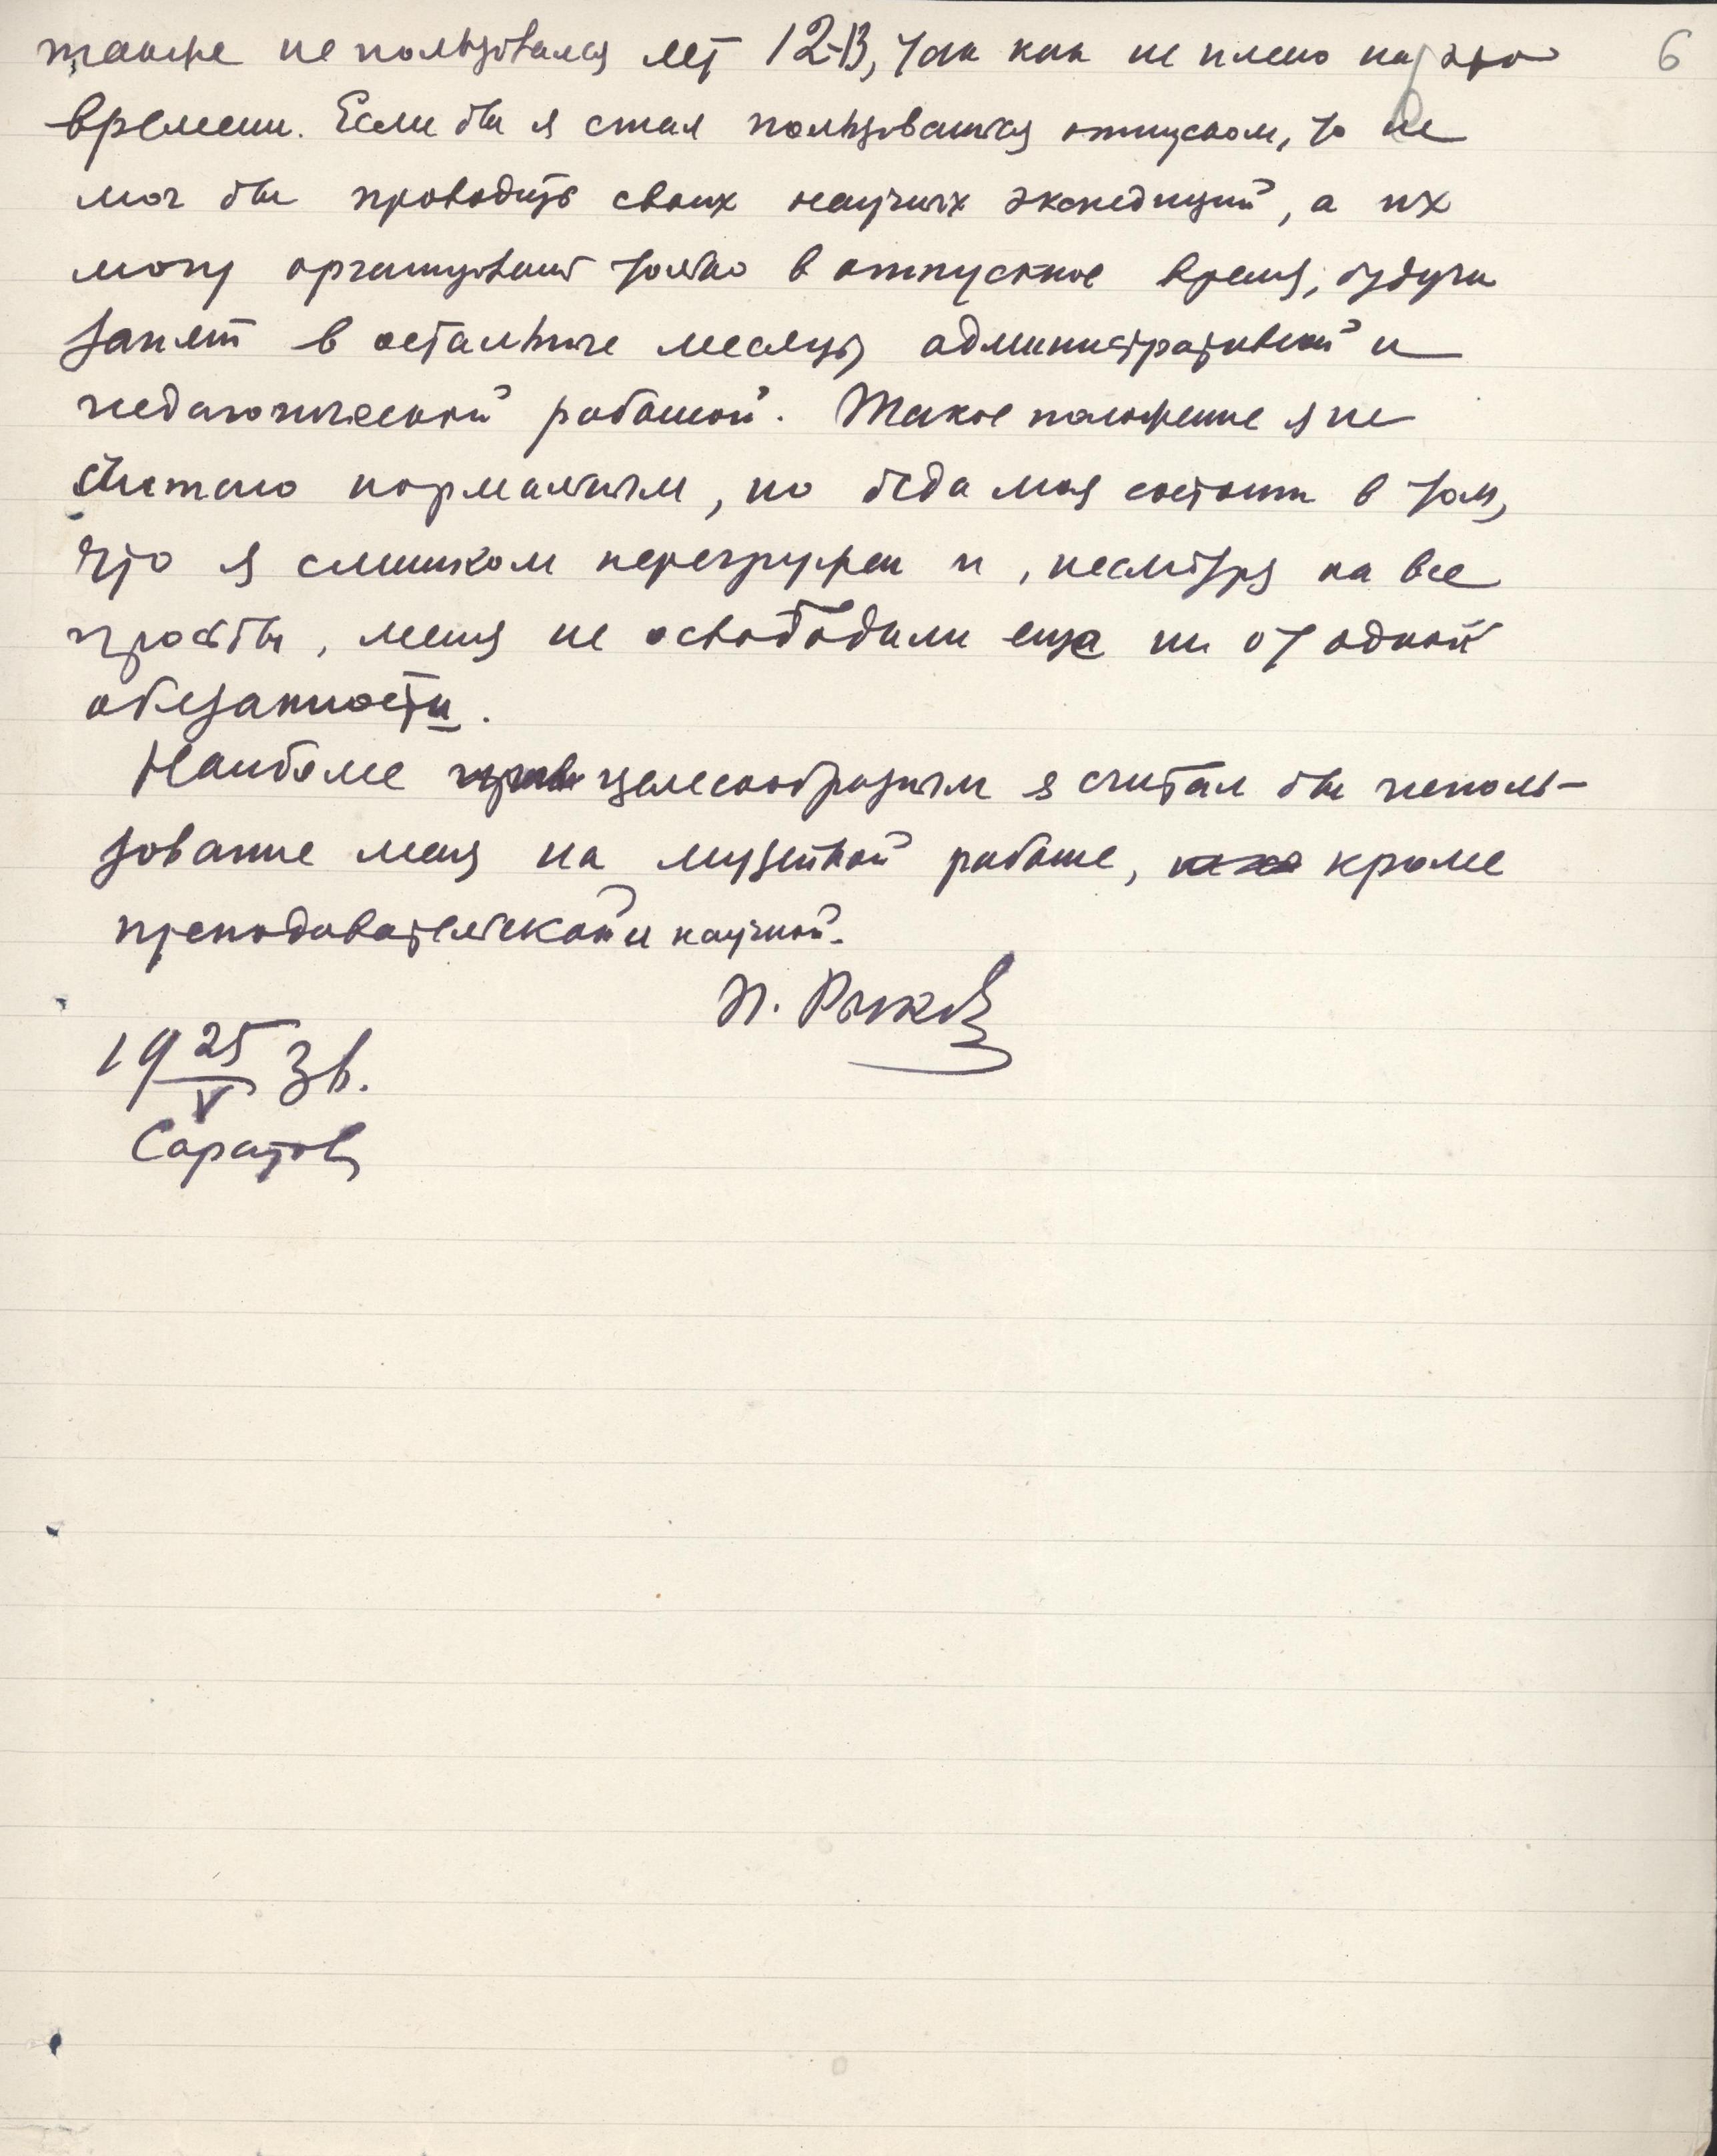 также не пользовался лет 12-13, так как не имею на это
6
времени. Если бы я стал пользоваться отпуском, то не
мог бы проводить своих научных экспедиций, а их
могу организовать только в отпускное время, будучи
занят в остальные месяцы административной и
педагогической работой. Такое положение я не
считаю нормальным, но беда моя состоит в том,
что я слишком перегружен и, несмотря на все
просьбы, меня не освободили еще ни от одной
обязанности.
Наиболее целесообразным я считал бы исполь-
зование меня на музейной работе, кроме
преподавательской и научной.
П. Рыков
19 25/V 3 г.
Саратов